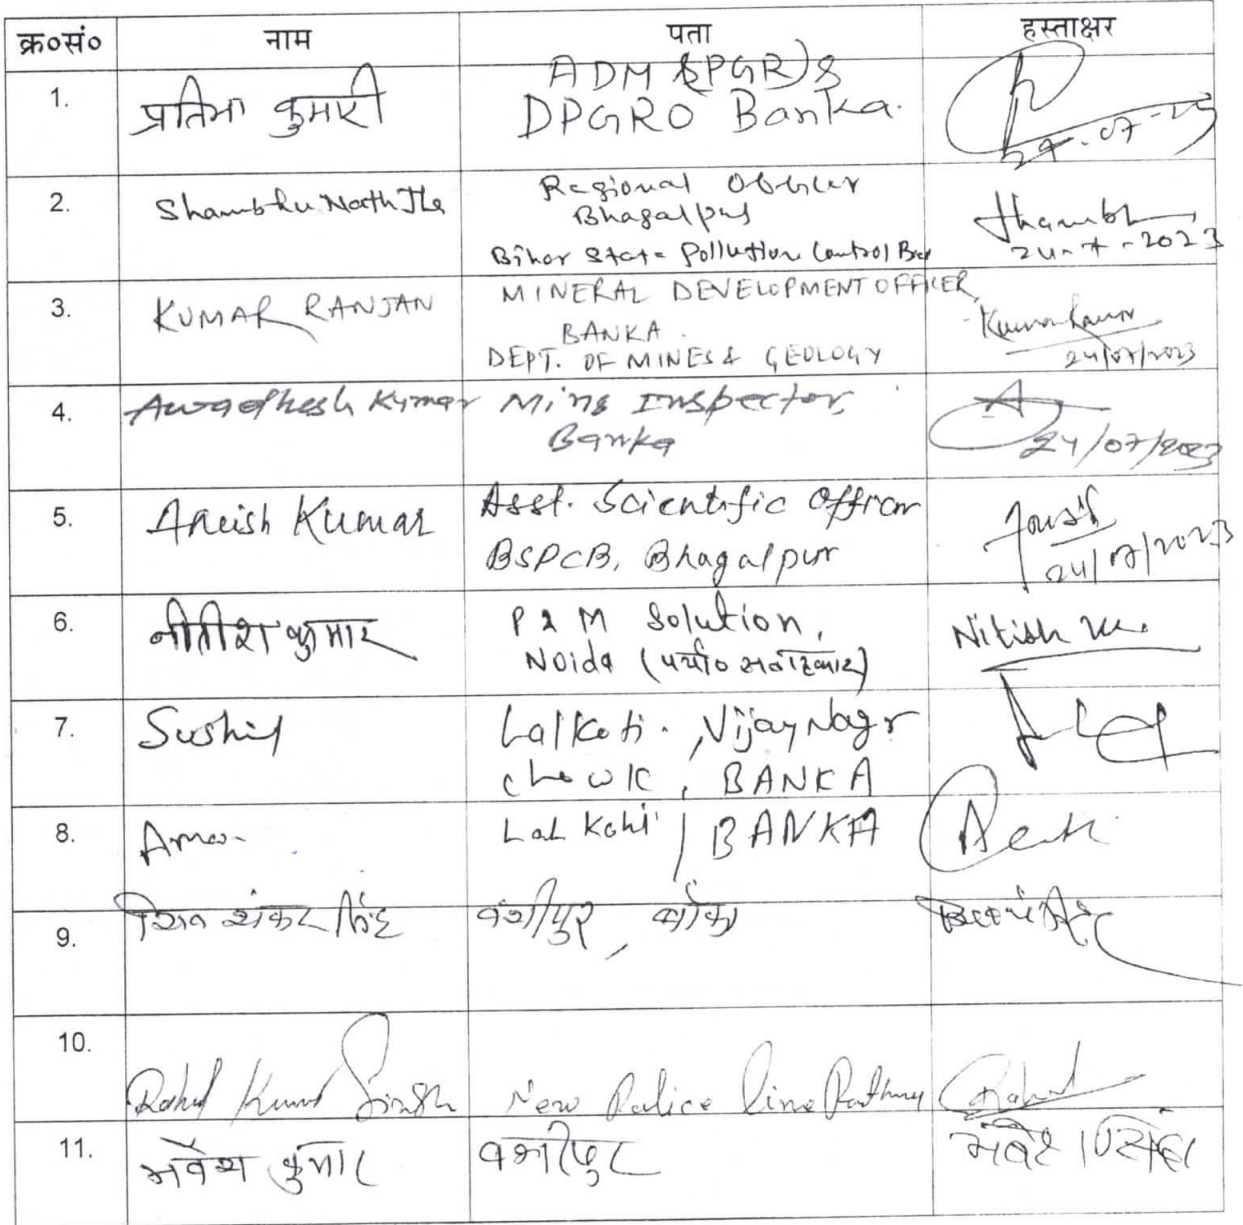 क्र०सं० नाम पता हस्ताक्षर
1. प्रतिमा कुमारी ADM (PGR) &
DPGRO Banka. 24-07-23
2. Shambhu Nath Jha Regional Officer
Bhagalpur
Bihar State Pollution Control Bod Shambhu
24-7-2023
3. KUMAR RANJAN MINERAL DEVELOPMENT OFFICER,
BANKA.
DEPT. OF MINES & GEOLOGY Kumar Ranjan
24/07/2023
4. Awadhesh Kumar Mins Inspector,
Banka 24/07/2023
5. Anish Kumar Asst. Scientific Officer
BSPCB, Bhagalpur 24/07/2023
6. नीतीश कुमार P & M Solution,
Noida (पर्या० सलाहकार) Nitish Ku.
7. Sushil Lalkoti, Vijay Nagr
chowk, BANKA
8. Lal Kohi, BANKA
9. शिव शंकर सिंह वंशीपुर, बाँका
10. Rahul Kumar Singh New Police line Rahul
11. भवेश कुमार